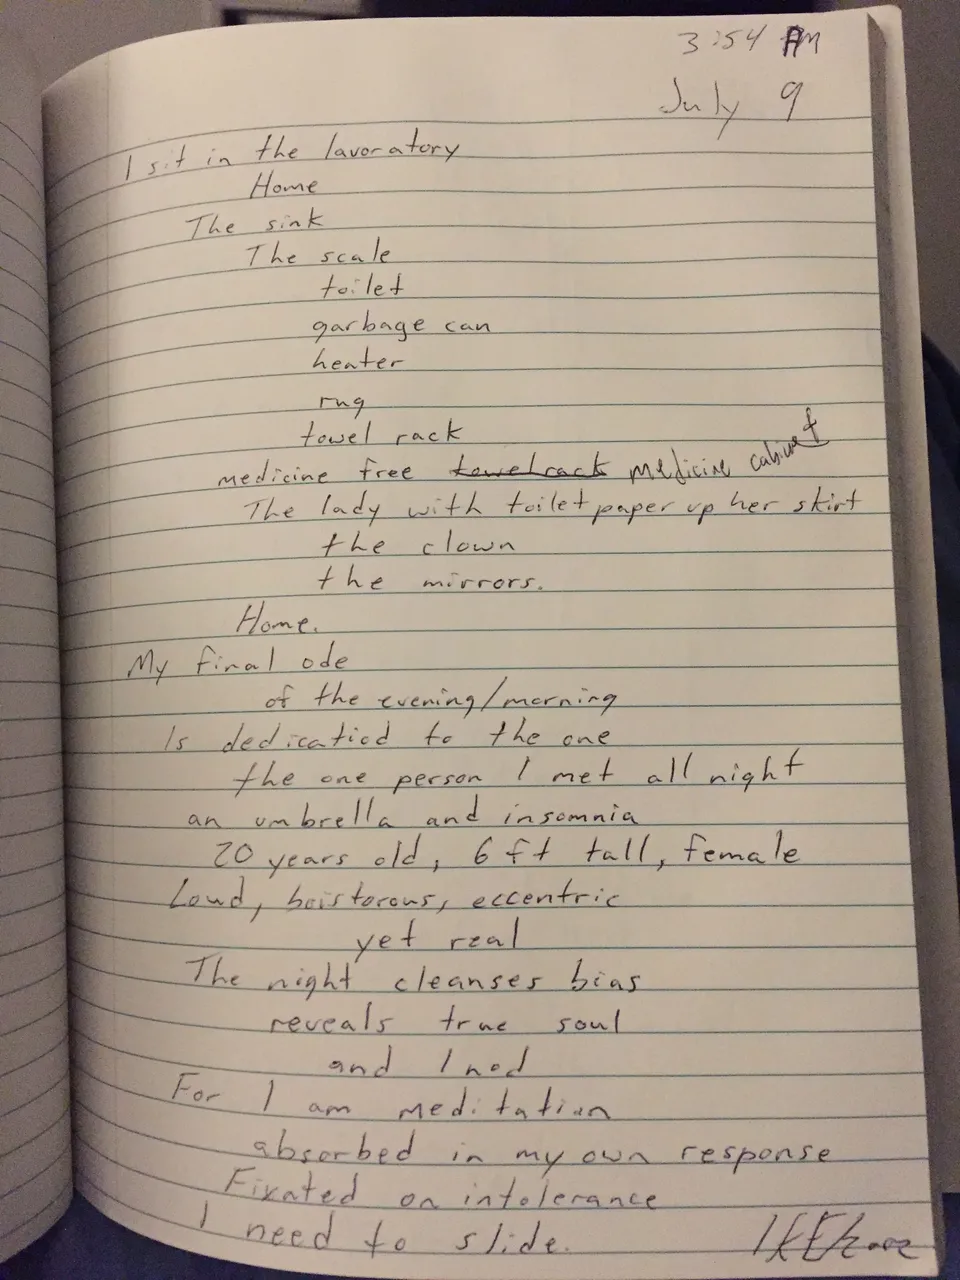 3:54 AM
July 9
I sit in the lavoratory
Home
The sink
The scale
toilet
garbage can
heater
rug
towel rack
medicine free towel rack medicine cabinet
The lady with toilet paper up her skirt
the clown
the mirrors.
Home.
My final ode
of the evening/morning
Is dedicatiod to the one
the one person I met all night
an umbrella and insomnia
20 years old, 6 ft tall, female
Loud, boistorous, eccentric
yet real
The night cleanses bias
reveals true soul
and I nod
For I am meditation
absorbed in my own response
Fixated on intolerance
I need to slide.